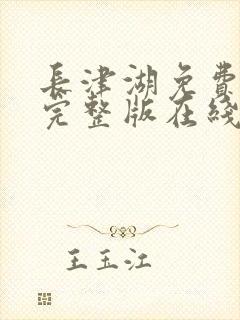 長津湖免費
完整版在綫
王玉江